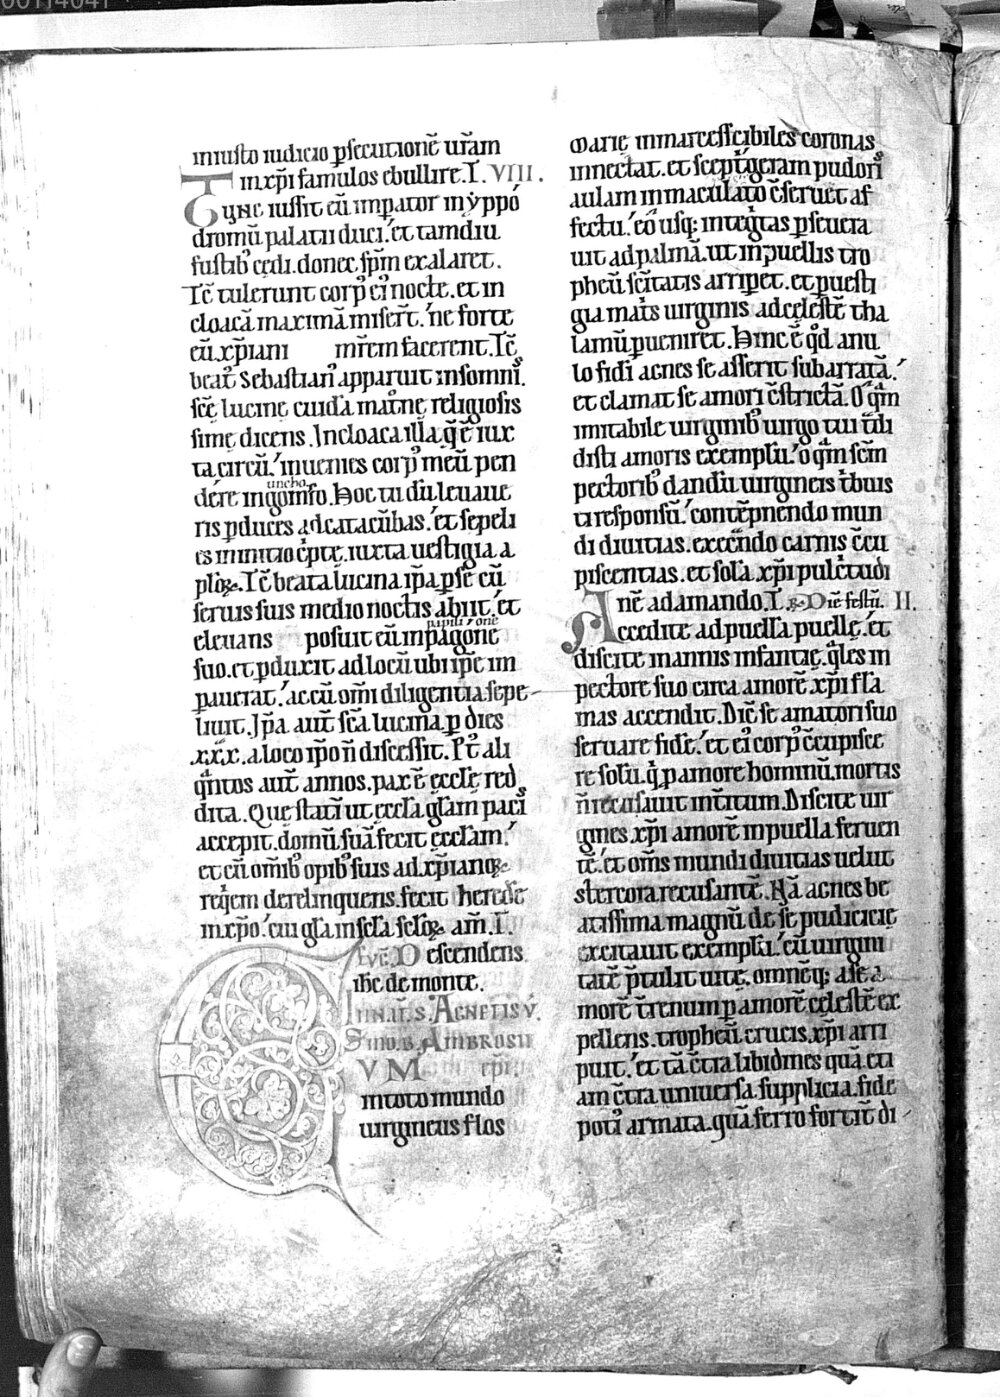 iniusto iudicio ꝑsecutionē ur̄am
in xp̄i famulos ebullire. L. VIII.
Tunc iussit eū imperator in yppo
dromū palatii duci. et tamdiu
fustib; cędi. donec sp̄m exalaret.
Tc̄ tulerunt corp; ei; nocte. et in
cloacā maximā miser̄t. ne forte
eū xp̄iani mr̄em facerent. Tc̄
beat; Sebastian; apparuit in somni;
sc̄ę lucinę cuidā mat̄nę religiosis
simę dicens. In cloaca illa q̄ ē iux
ta circū. inuenies corp; meū pen
uncho
dere in gomfo. Hoc tu dū leuaue
ris ꝑduces ad catacūbas. et sepeli
es in initio c̄pte. iuxta uestigia a
plōꝝ. Tc̄ beata lucina ip̄a ꝑ se cū
seruis suis medio noctis abiit. et
eleuans posuit eū in pagone
suo. et ꝑduxit ad locū ubi ip̄e im
pauerat. ac cū om̄i diligentia sepe
liuit. Ip̄a aut̄ sc̄a lucina ꝑ dies
xxx. a loco ip̄o n̄ discessit. P; ali
q̄ntos aut̄ annos. pax ē eccłę red
dita. Que statī ut eccła głam paci;
accepit. domū suā fecit ęccłam.
et cū om̄ib; opib; suis ad xp̄ianoꝝ
reqem derelinquens. fecit heredē
in xp̄o. cui gła in scła scłoꝝ am̄. L.
Descendens
ih̄c de monte.
In nat̄. s. Agnetis v.
Smo. b. Ambrosii
VM
in toto mundo
uirgineus flos
marię inmarcessibiles coronas
innectat. et sceptigeram pudori;
aulam inmaculato c̄seruet af
fectu. eo usq; inteḡtas ꝑseuera
uit ad palmā. ut in puellis tro
pheū sc̄itatis arriperet. et ꝑ uesti
gia mat̄s uirginis ad cęlestē tha
lamū ꝑueniret. Hinc ē qd̄ anu
lo fidi; agnes se asserit subarratā.
et clamat se amori c̄strictā. O q̄m
imitabile uirginib; uirgo tui t̄di
disti amoris exemplū. o q̄m sc̄m
pectorib; dandū uirgineis t̄buis
ti responsū. contēpnendo mun
di diuitias. execrando carnis c̄cu
piscentias. et sola xp̄i pulcritudi
ne adamando. L. Die festū. II.
Accedite ad puellā puellę. et
discite mannis infantię. q̄les in
pectore suo circa amorē xp̄i fla
mas accendit. Dic̄ se amatori suo
seruare fidē. et ei corp; c̄cupisce
re solū. q̄ ꝑ amore hominū. mortis
n̄ recusauit int̄itum. Discite uir
gines xp̄i amorē in puella feruen
tē. et om̄s mundi diuitias uelut
stercora recusantē. Nā agnes be
atissima magnū de se pudicicię
excitauit exemplū. cū uirgini
tatē p̄tulit uitę. omneq; a se a
morē t̄renum ꝑ amorē cęlestē ex
pellens. tropheū crucis xp̄i arri
puit. et tā c̄tra libidines quā eti
am c̄tra uniuersa supplicia. fide
poti; armata. quā ferro fortit̄ di